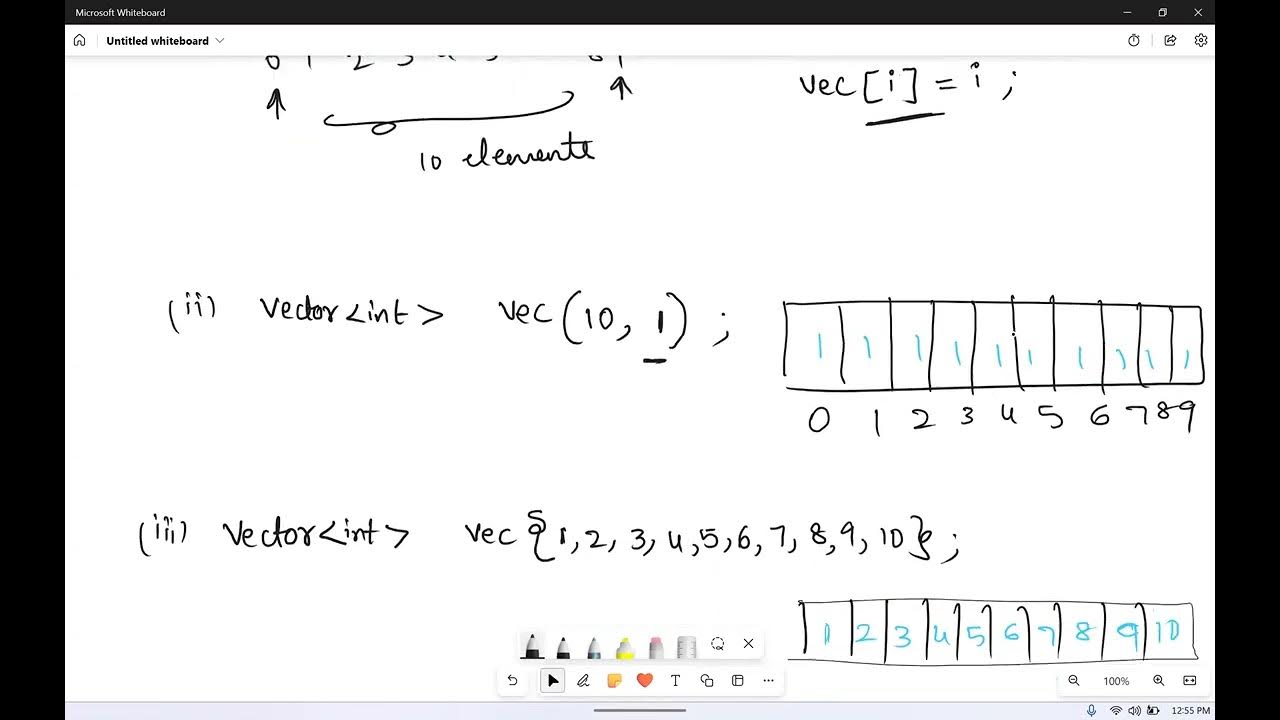 Microsoft Whiteboard
Untitled whiteboard
0 1 2 3 4 5 8 9
vec[i] = i ;
10 elements
(ii) vector<int> vec (10, 1) ;
1 1 1 1 1 1 1 1 1 1
0 1 2 3 4 5 6 7 8 9
(iii) vector<int> vec {1, 2, 3, 4, 5, 6, 7, 8, 9, 10} ;
1 2 3 4 5 6 7 8 9 10
100%
12:55 PM